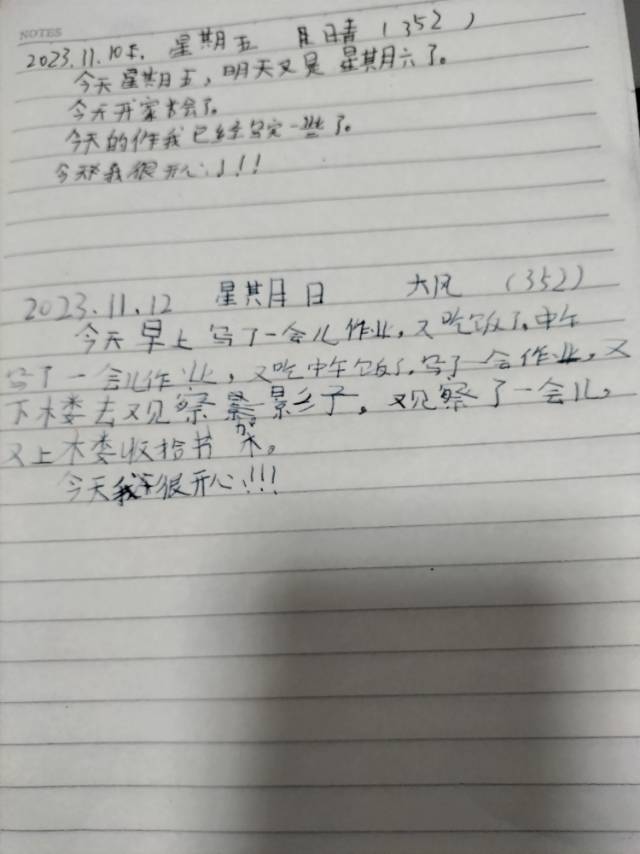 NOTES
2023.11.10 星期五 晴 (352)
今天星期五,明天又是星期六了。
今天开家长会了。
今天的作我已经写完一些了。
今天我很开心!!!
2023.11.12 星期日 大风 (352)
今天早上写了一会儿作业,又吃饭了,中午
写了一会儿作业,又吃中午饭了,写了一会作业,又
下楼去观察影子,观察了一会儿,
又上楼收拾书架。
今天我很开心!!!